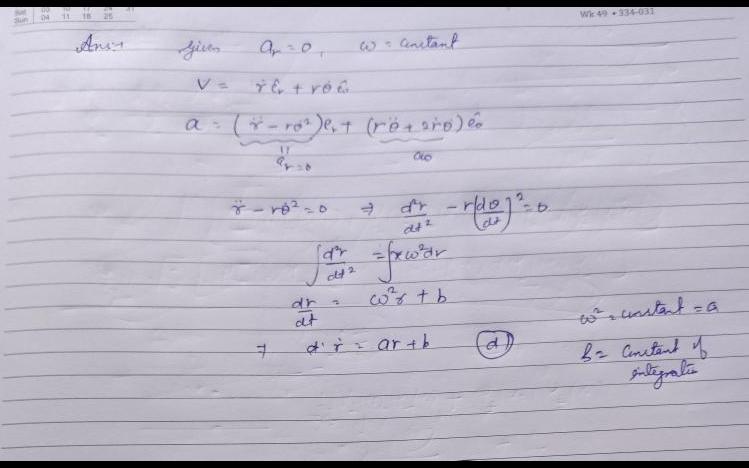 Sat 03 10 17 24 31
Sun 04 11 18 25
Wk 49 • 334-031
Ans:→ Given a_r = 0, ω = constant
V = ṙ ê_r + r θ̇ ê_θ
a = (r̈ − rθ̇²) e_r + (rθ̈ + 2ṙθ̇) ê_θ
a_r = 0 a_θ
r̈ − rθ̇² = 0 ⇒ d²r/dt² − r(dθ/dt)² = 0
∫ d²r/dt² = ∫ rω² dr
dr/dt = ω²r + b
ω² = constant = a
⇒ ṙ = ar + b (d)
b = constant of
integration